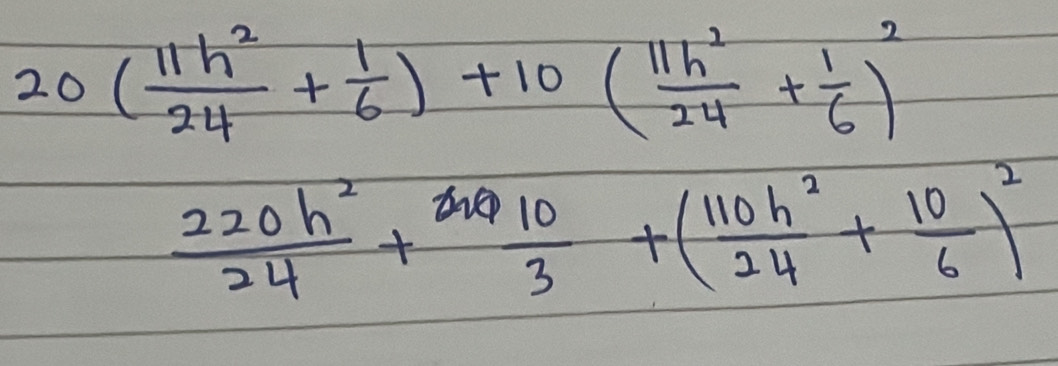 20 (11h²/24 + 1/6) + 10 (11h²/24 + 1/6)²
220h²/24 + 10/3 + (110h²/24 + 10/6)²